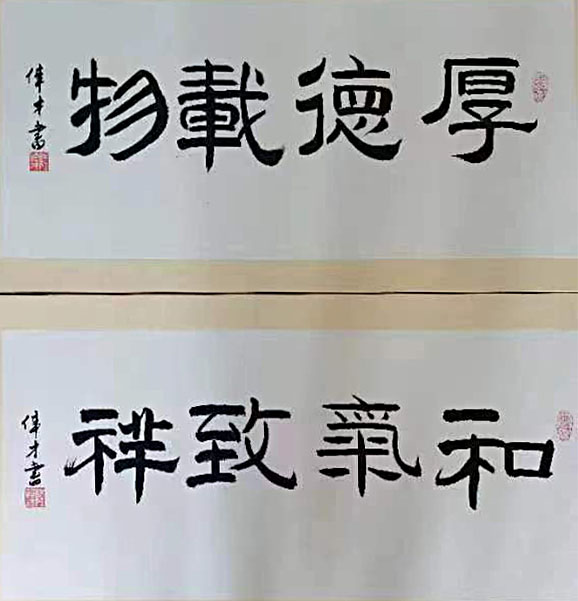 厚德載物
偉才書
和氣致祥
偉才書